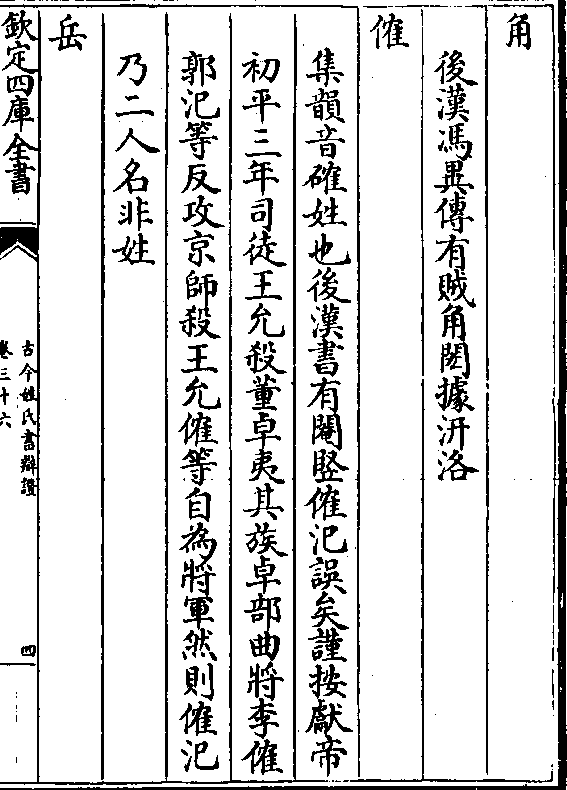 角
後漢馮異傳有賊角閎據汧洛
傕
集韻音確姓也後漢書有閹豎傕汜誤矣謹按獻帝
初平三年司徒王允殺董卓夷其族卓部曲將李傕
郭汜等反攻京師殺王允傕等自為將軍然則傕汜
乃二人名非姓
岳
欽定四庫全書
古今姓氏書辯證
卷三十六
四